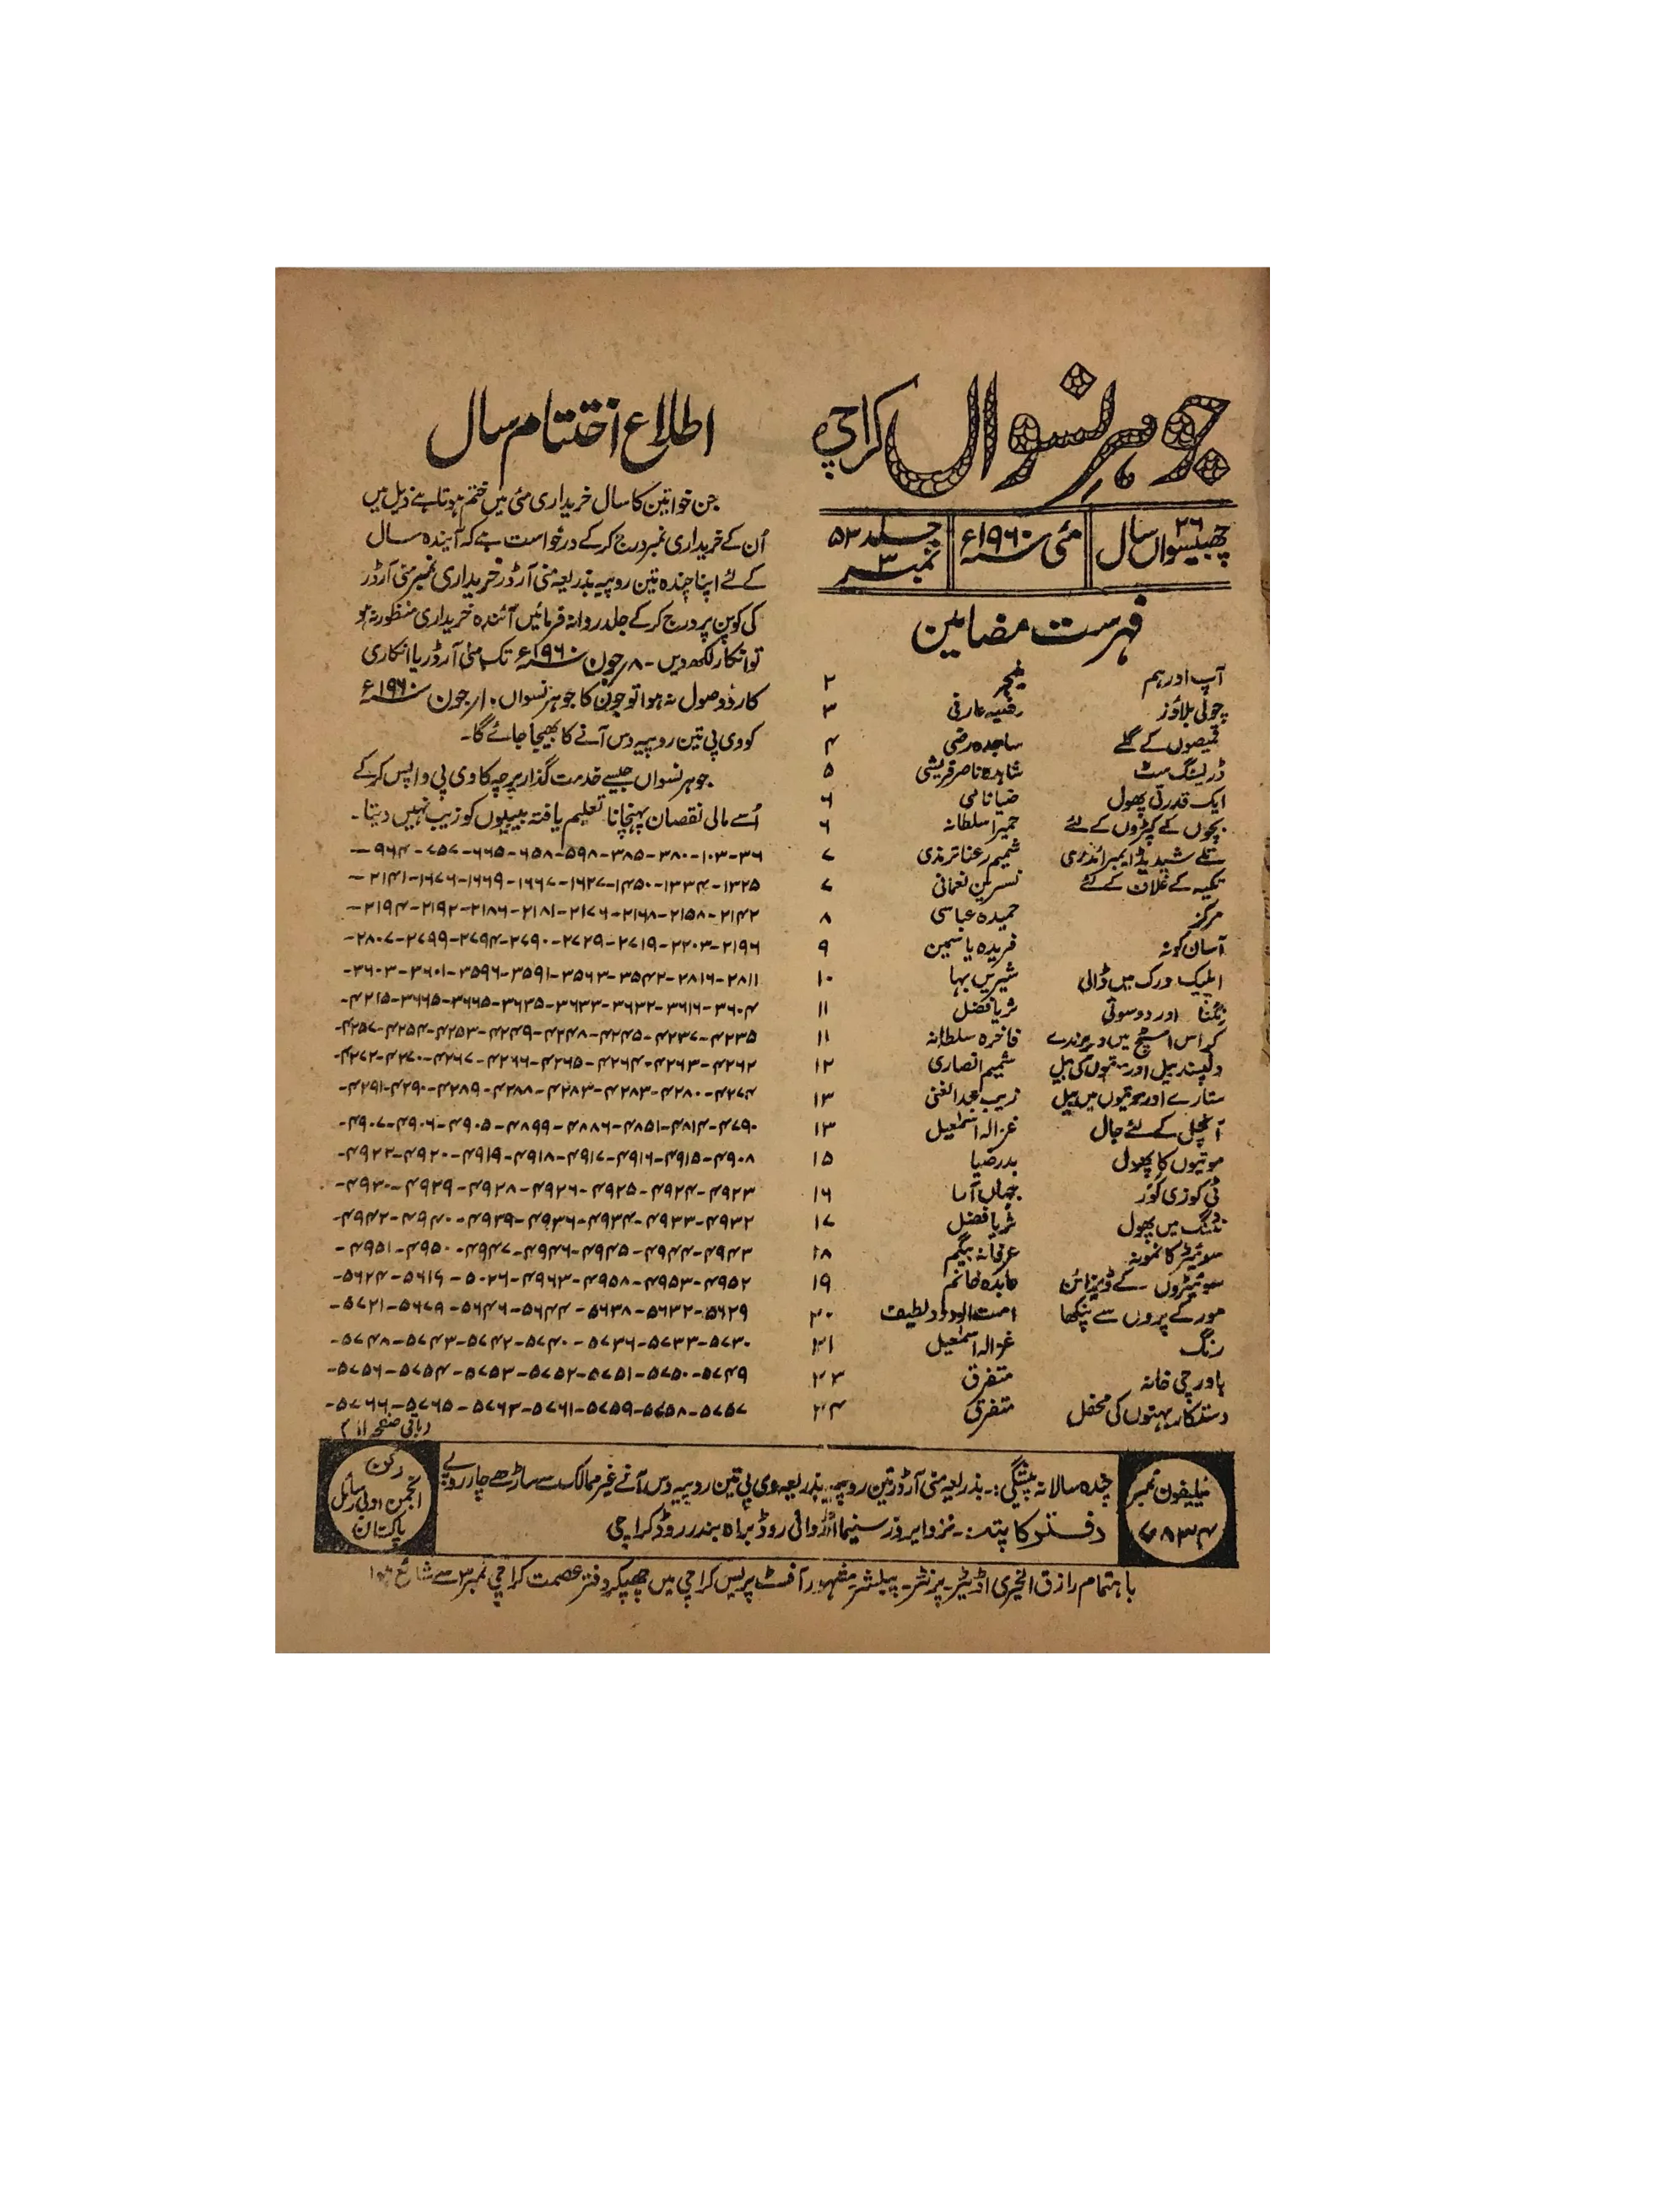 جوہر نسواں کراچی
چھبیسواں ۲۶ سال
مئی سنہ ۱۹۶۰ء
جلد ۵۲
نمبر ۳
فہرست مضامین
آپ اور ہم منیجر ۲
چولی بلاؤز رضیہ عارفی ۳
قمیصوں کے گلے ساجدہ رضی ۴
ڈریسنگ سٹ شاہدہ ناصر قریشی ۵
ایک قدرتی پھول ضیا نامی ۶
بچوں کے کپڑوں کے لئے حمیرا سلطانہ ۶
شیڈیڈ ایمبرائڈری شمیم رعنا ترمذی ۷
تکیہ کے غلاف کے لئے نسرین نعمانی ۷
مرکز حمیدہ عباسی ۸
آسان کونہ فریدہ یاسمین ۹
اپلیک ورک میں ڈالی شیریں بہا ۱۰
نگنا اور دوسوتی ثریا فضل ۱۱
کراس اسٹیچ میں دو پرندے فاخرہ سلطانہ ۱۱
دلپسند بیل اور بیل شمیم انصاری ۱۲
ستارے اور موتیوں میں بیل زیب عبدالغنی ۱۳
آنچل کے لئے جال غزالہ اسمٰعیل ۱۳
موتیوں کا پھول بدر ضیا ۱۵
ٹی کوزی کور جہاں آرا ۱۶
نٹنگ میں پھول ثریا فضل ۱۷
سوئیٹر کا نمونہ عرفانہ بیگم ۱۸
سوئیٹروں کے ڈیزائن عابدہ خانم ۱۹
مور کے پروں سے پنکھا امت الودود لطیف ۲۰
رنگ غزالہ اسمٰعیل ۲۱
باورچی خانہ متفرق ۲۳
دستکار بہنوں کی محفل متفرق ۲۴
اطلاع اختتام سال
جن خواتین کا سال خریداری مئی میں ختم ہوتا ہے ذیل میں
اُن کے خریداری نمبر درج کر کے درخواست ہے کہ آیندہ سال
کے لئے اپنا چندہ تین روپیہ بذریعہ منی آرڈر خریداری نمبر منی آرڈر
کی کوپن پر درج کر کے جلد روانہ فرمائیں آئندہ خریداری منظور نہ ہو
تو انکار لکھ دیں۔ ۸؍جون سنہ ۱۹۶۰ء تک منی آرڈر یا انکاری
کارڈ وصول نہ ہوا تو جون کا جوہر نسواں ۱۰؍جون سنہ ۱۹۶۰ء
کو وی پی تین روپیہ دس آنے کا بھیجا جائے گا۔
جوہر نسواں جیسے خدمت گذار پرچہ کا وی پی واپس کر کے
اُسے مالی نقصان پہنچانا تعلیم یافتہ بیبیوں کو زیب نہیں دیتا۔
۳۶-۱۰۳-۳۸۰-۳۸۵-۵۹۸-۶۵۸-۶۶۵-۷۵۷-۹۶۴-
۱۳۲۵-۱۳۳۴-۱۴۵۰-۱۶۲۷-۱۶۶۷-۱۶۶۹-۱۶۷۶-۲۱۴۱-
۲۱۴۲-۲۱۵۸-۲۱۶۸-۲۱۷۶-۲۱۸۱-۲۱۸۶-۲۱۹۲-۲۱۹۴-
۲۱۹۶-۲۲۰۳-۲۷۱۹-۲۷۲۹-۲۷۹۰-۲۷۹۴-۲۷۹۹-۲۸۰۷-
۲۸۱۱-۲۸۱۶-۳۵۴۲-۳۵۶۳-۳۵۹۱-۳۵۹۶-۳۶۰۱-۳۶۰۳-
۳۶۰۴-۳۶۱۶-۳۶۳۲-۳۶۳۳-۳۶۳۵-۳۶۶۵-۳۶۶۵-۴۲۱۵-
۴۲۳۵-۴۲۳۷-۴۲۴۵-۴۲۴۷-۴۲۴۹-۴۲۵۳-۴۲۵۴-۴۲۵۷-
۴۲۶۲-۴۲۶۳-۴۲۶۴-۴۲۶۵-۴۲۶۶-۴۲۶۷-۴۲۷۰-۴۲۷۲-
۴۲۷۴-۴۲۸۰-۴۲۸۳-۴۲۸۳-۴۲۸۷-۴۲۸۹-۴۲۹۰-۴۲۹۱-
۴۷۹۰-۴۸۱۴-۴۸۵۱-۴۸۸۶-۴۸۹۹-۴۹۰۵-۴۹۰۶-۴۹۰۷-
۴۹۰۸-۴۹۱۵-۴۹۱۶-۴۹۱۷-۴۹۱۸-۴۹۱۹-۴۹۲۰-۴۹۲۲-
۴۹۲۳-۴۹۲۴-۴۹۲۵-۴۹۲۶-۴۹۲۷-۴۹۲۹-۴۹۳۰-
۴۹۳۲-۴۹۳۳-۴۹۳۴-۴۹۳۶-۴۹۳۹-۴۹۴۰-۴۹۴۲-
۴۹۴۳-۴۹۴۴-۴۹۴۵-۴۹۴۶-۴۹۴۷-۴۹۵۰-۴۹۵۱-
۴۹۵۲-۴۹۵۳-۴۹۵۷-۴۹۶۳-۵۰۲۶-۵۶۱۶-۵۶۲۴-
۵۶۲۹-۵۶۳۲-۵۶۳۸-۵۶۴۴-۵۶۴۶-۵۶۷۹-۵۷۲۱-
۵۷۳۰-۵۷۳۳-۵۷۳۶-۵۷۴۰-۵۷۴۲-۵۷۴۳-۵۷۴۷-
۵۷۴۹-۵۷۵۰-۵۷۵۱-۵۷۵۲-۵۷۵۳-۵۷۵۴-۵۷۵۶-
۵۷۵۷-۵۷۵۸-۵۷۵۹-۵۷۶۱-۵۷۶۳-۵۷۶۵-۵۷۶۶-
(باقی صفحہ ۱۱ پر)
ٹیلیفون نمبر
۷۸۳۴
چندہ سالانہ پیشگی:- بذریعہ منی آرڈر تین روپیہ بذریعہ وی پی تین روپیہ دس آنے غیر ممالک سے ساڑھے چار روپے
دفتر کا پتہ:- نزد ایروز سنیما اڈوانی روڈ براہ بندر روڈ کراچی
رکن
انجمن ادبی رسائل
پاکستان
باہتمام رازق الخیری اڈیٹر- پرنٹر- پبلشر مشہور آفسٹ پریس کراچی میں چھپکر دفتر عصمت کراچی نمبر ۳ سے شائع ہوا